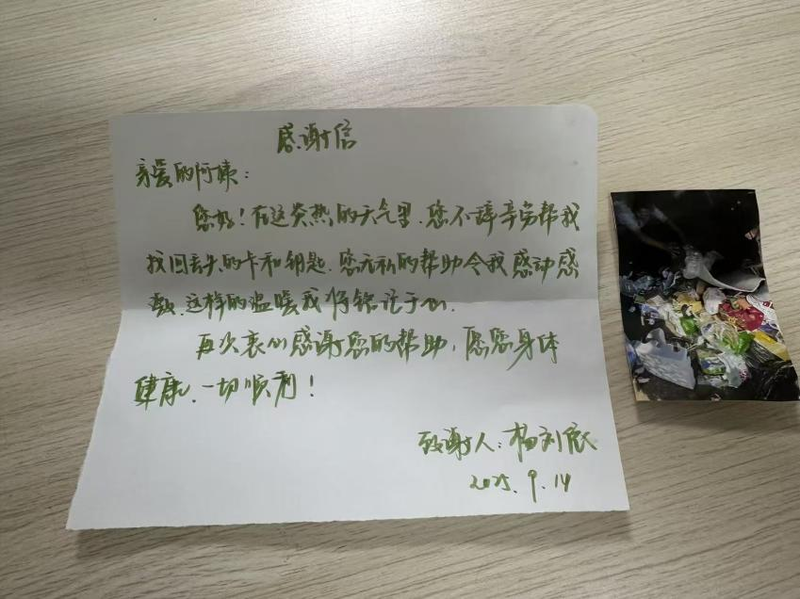 感谢信
亲爱的阿姨：
您好！在这炎热的天气里，您不辞辛劳帮我
找回丢失的卡和钥匙，您无私的帮助令我感动感
激，这样的温暖我将铭记于心。
再次衷心感谢您的帮助，愿您身体
健康，一切顺利！
致谢人：杨刘宸
2025.9.14